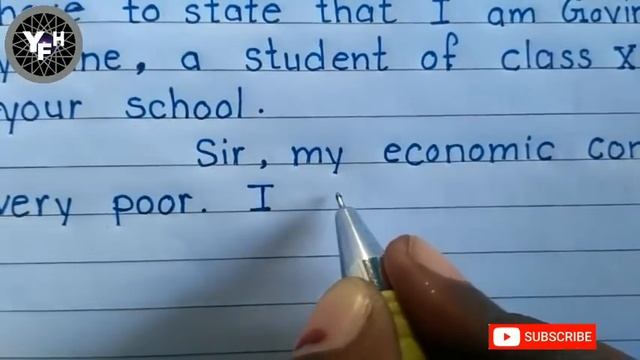 to state that I am Govin
ne, a student of class X
your school.
Sir, my economic con
very poor. I
YFH
SUBSCRIBE